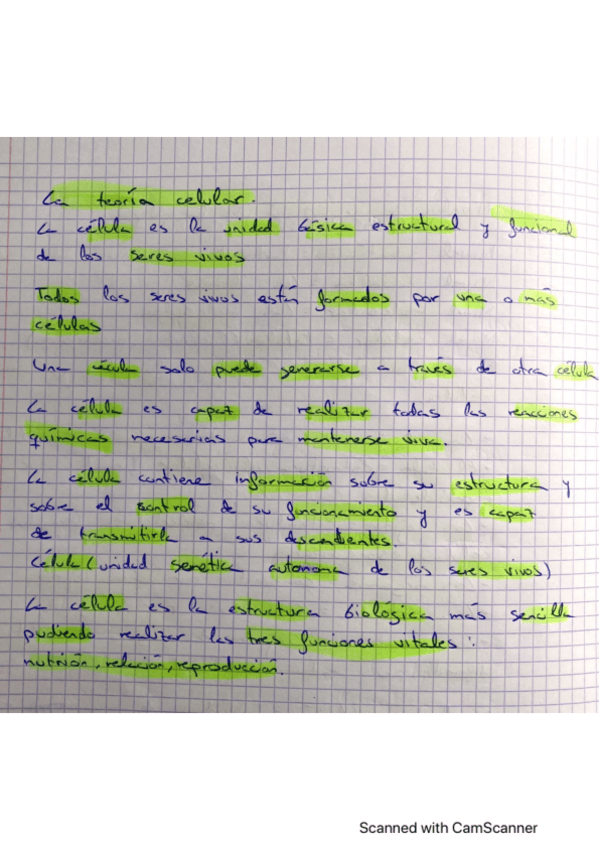 La teoría celular.
La célula es la unidad básica estructural y funcional
de los seres vivos
Todos los seres vivos están formados por una o más
células
Una célula solo puede generarse a través de otra célula
La célula es capaz de realizar todas las reacciones
químicas necesarias para mantenerse viva.
La célula contiene información sobre su estructura y
sobre el control de su funcionamiento y es capaz
de transmitirla a sus descendientes.
Célula (unidad genética autónoma de los seres vivos)
La célula es la estructura biológica más sencilla
pudiendo realizar las tres funciones vitales:
nutrición, relación, reproducción.
Scanned with CamScanner